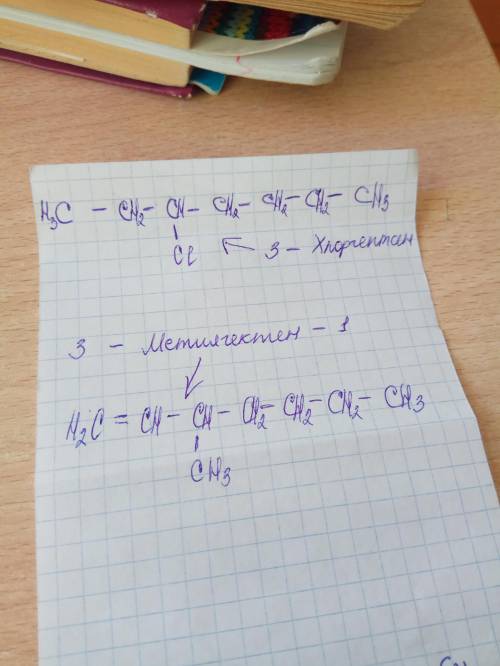 H₃C – CH₂ – CH – CH₂ – CH₂ – CH₂ – CH₃
Cl ← 3 – Хлоргептан
3 – Метилгектен – 1
H₂C = CH – CH – CH₂ – CH₂ – CH₂ – CH₃
CH₃